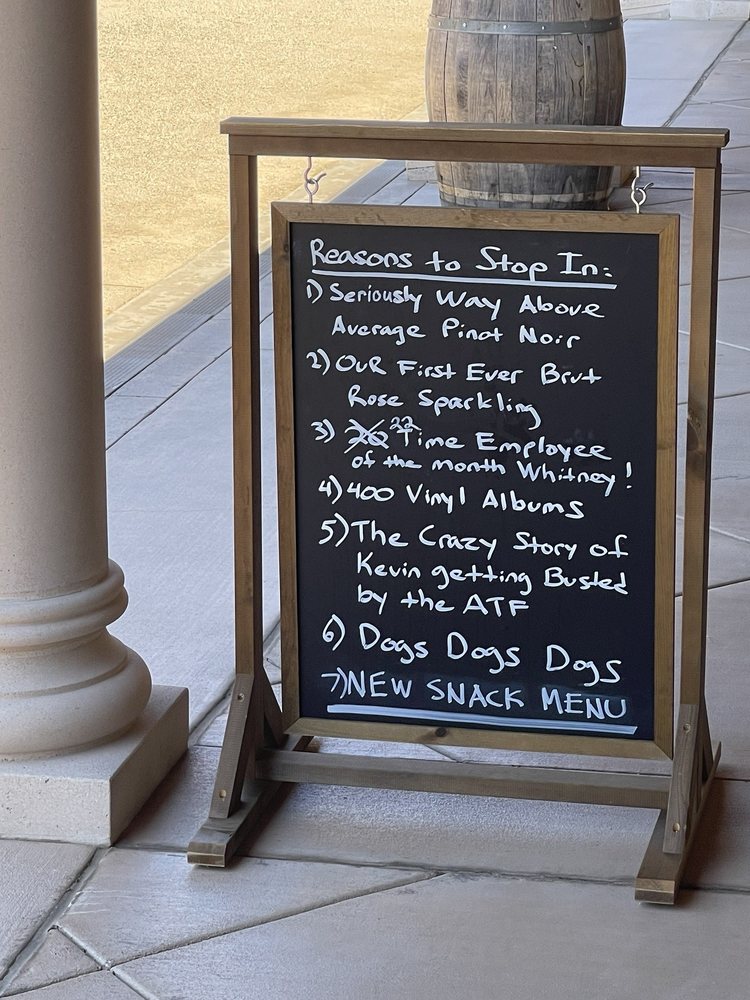 Reasons to Stop In:
1) Seriously Way Above
Average Pinot Noir
2) Our First Ever Brut
Rose Sparkling
3) 20 22 Time Employee
of the month Whitney!
4) 400 Vinyl Albums
5) The Crazy Story of
Kevin getting Busted
by the ATF
6) Dogs Dogs Dogs
7) NEW SNACK MENU